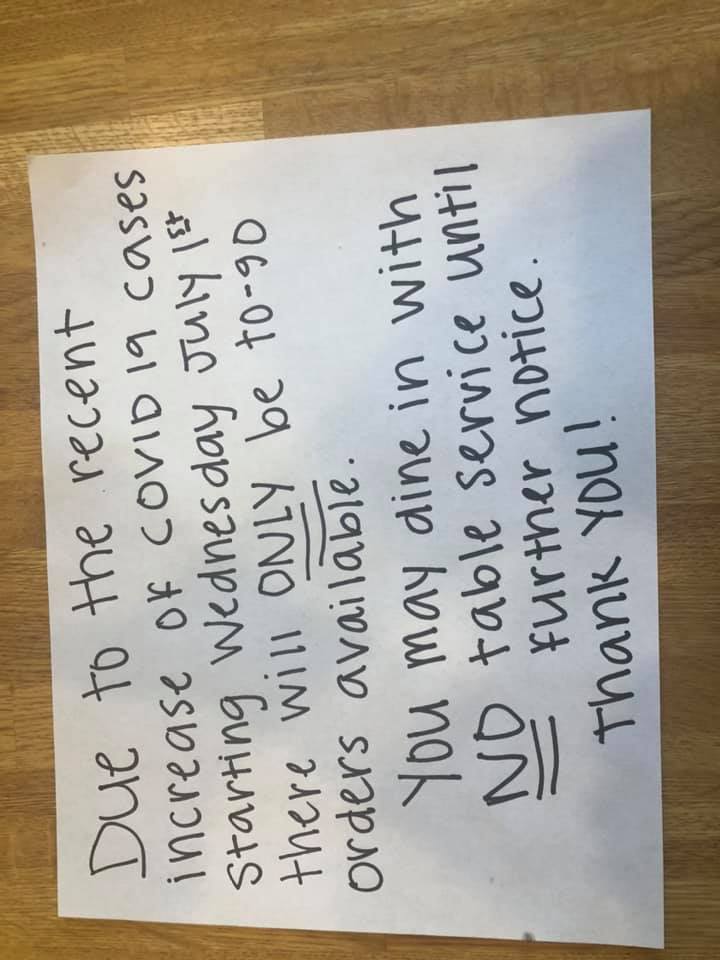 Due to the recent
increase of COVID 19 cases
starting Wednesday July 1st
there will ONLY be to-go
orders available.
You may dine in with
NO table service until
further notice.
Thank you!